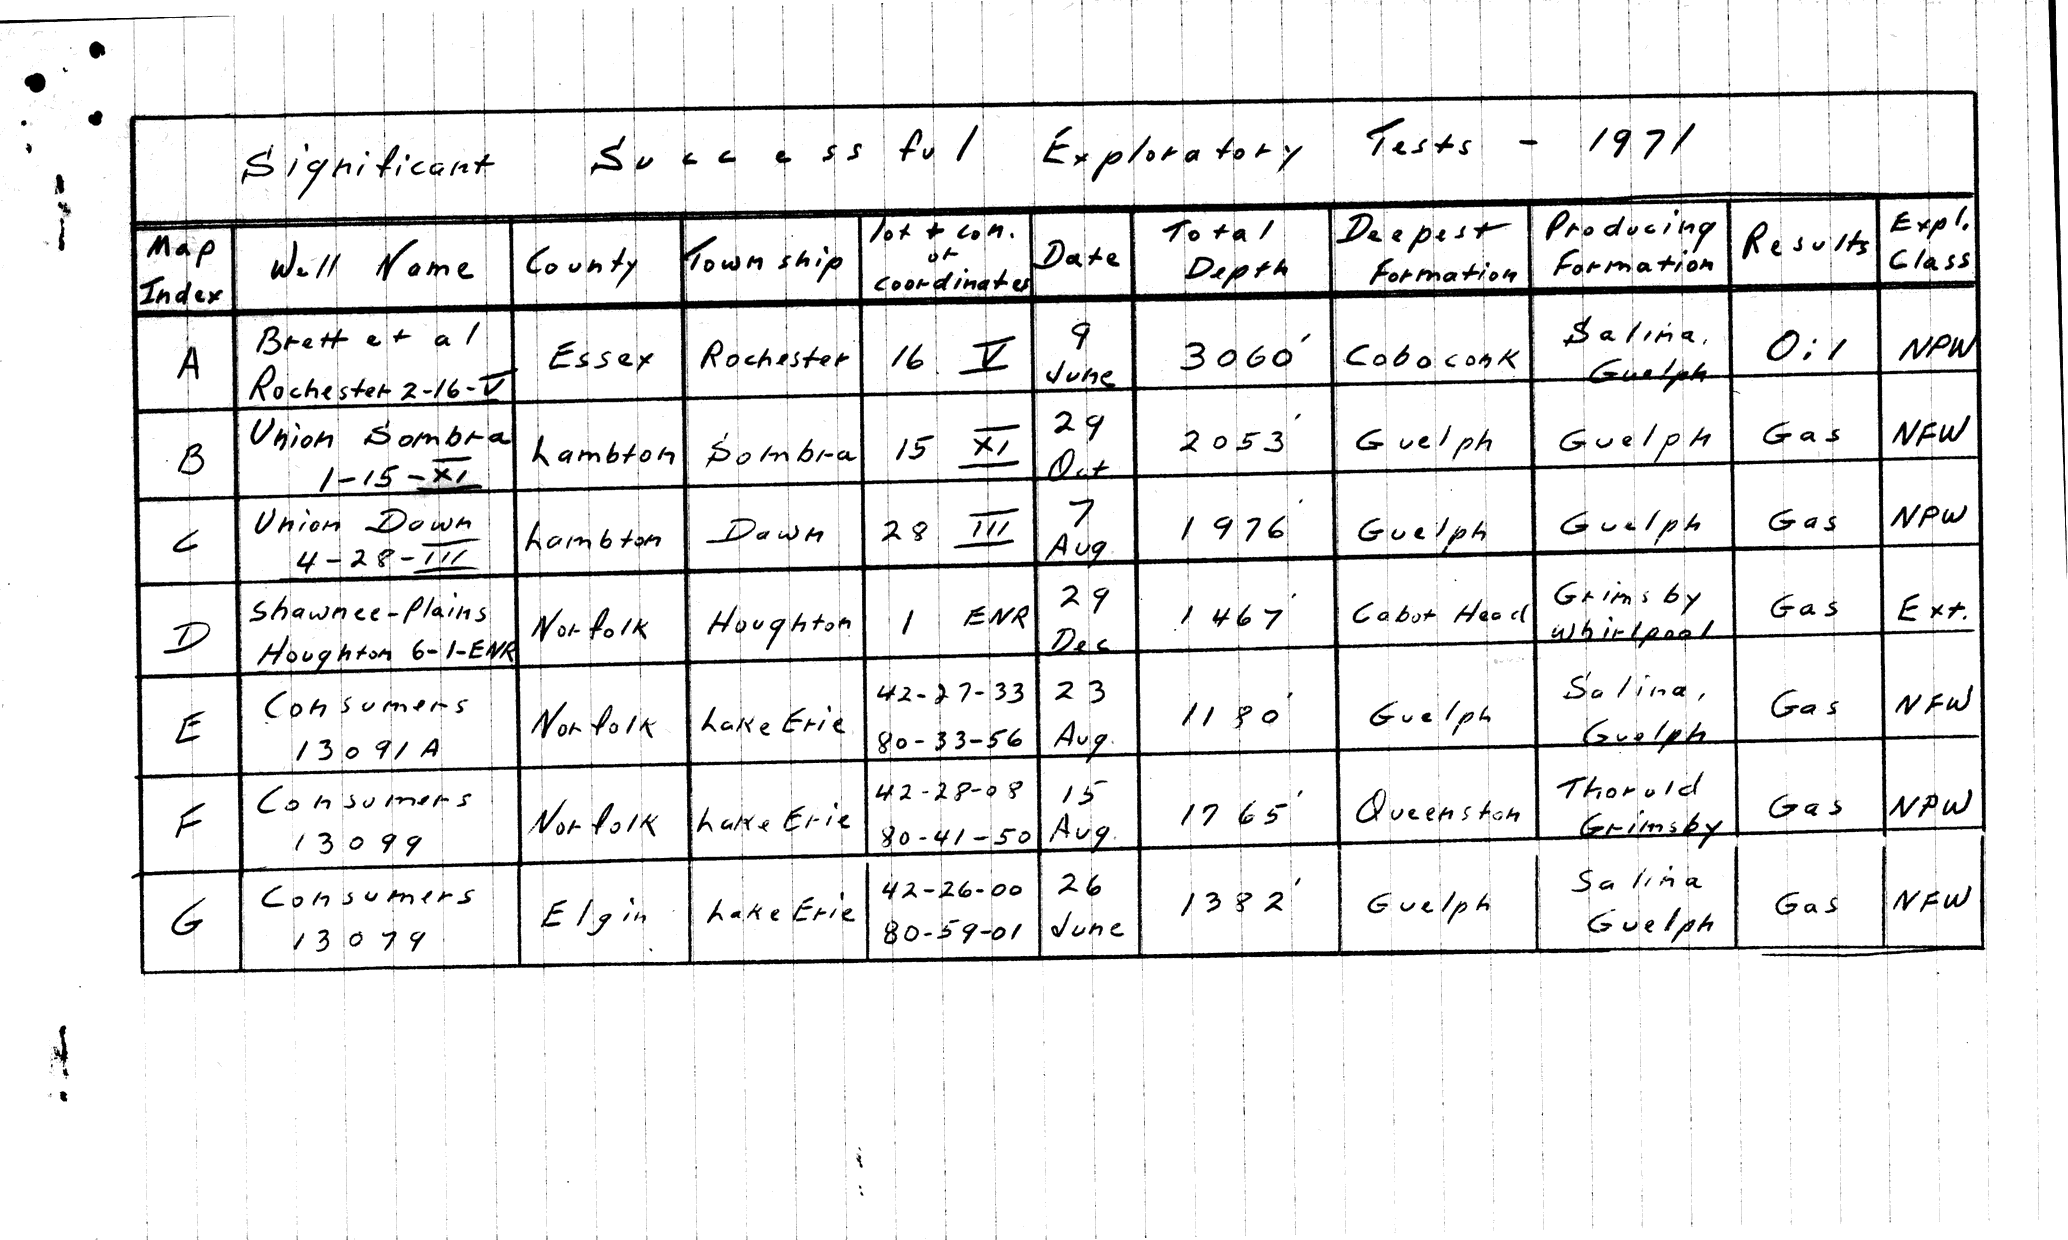 Significant Successful Exploratory Tests - 1971
Map Index | Well Name | County | Township | lot + con. or coordinates | Date | Total Depth | Deepest Formation | Producing Formation | Results | Expl. Class
A | Brett et al Rochester 2-16-V | Essex | Rochester | 16 V | 9 June | 3060' | Coboconk | Salina, Guelph | Oil | NPW
B | Union Sombra 1-15-XI | Lambton | Sombra | 15 XI | 29 Oct | 2053' | Guelph | Guelph | Gas | NFW
C | Union Dawn 4-28-III | Lambton | Dawn | 28 III | 7 Aug | 1976' | Guelph | Guelph | Gas | NPW
D | Shawnee-Plains Houghton 6-1-ENR | Norfolk | Houghton | 1 ENR | 29 Dec | 1467' | Cabot Head | Grimsby Whirlpool | Gas | Ext.
E | Consumers 13091A | Norfolk | Lake Erie | 42-27-33 80-33-56 | 23 Aug. | 1180' | Guelph | Salina, Guelph | Gas | NFW
F | Consumers 13099 | Norfolk | Lake Erie | 42-28-08 80-41-50 | 15 Aug. | 1765' | Queenston | Thorold Grimsby | Gas | NPW
G | Consumers 13079 | Elgin | Lake Erie | 42-26-00 80-59-01 | 26 June | 1382' | Guelph | Salina Guelph | Gas | NFW